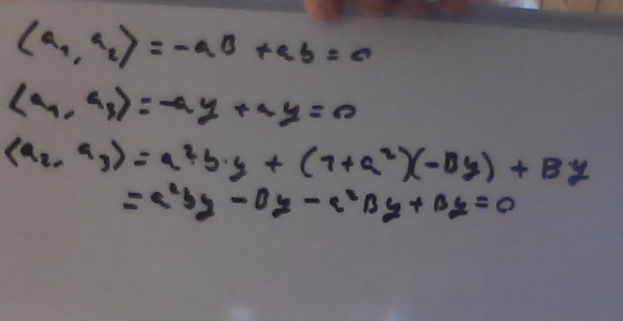 ⟨a₁, a₂⟩ = -aB + ab = 0
⟨a₁, a₃⟩ = -ay + ay = 0
⟨a₂, a₃⟩ = a²b·y + (1+a²)(-By) + By
= a²by - By - a²By + By = 0